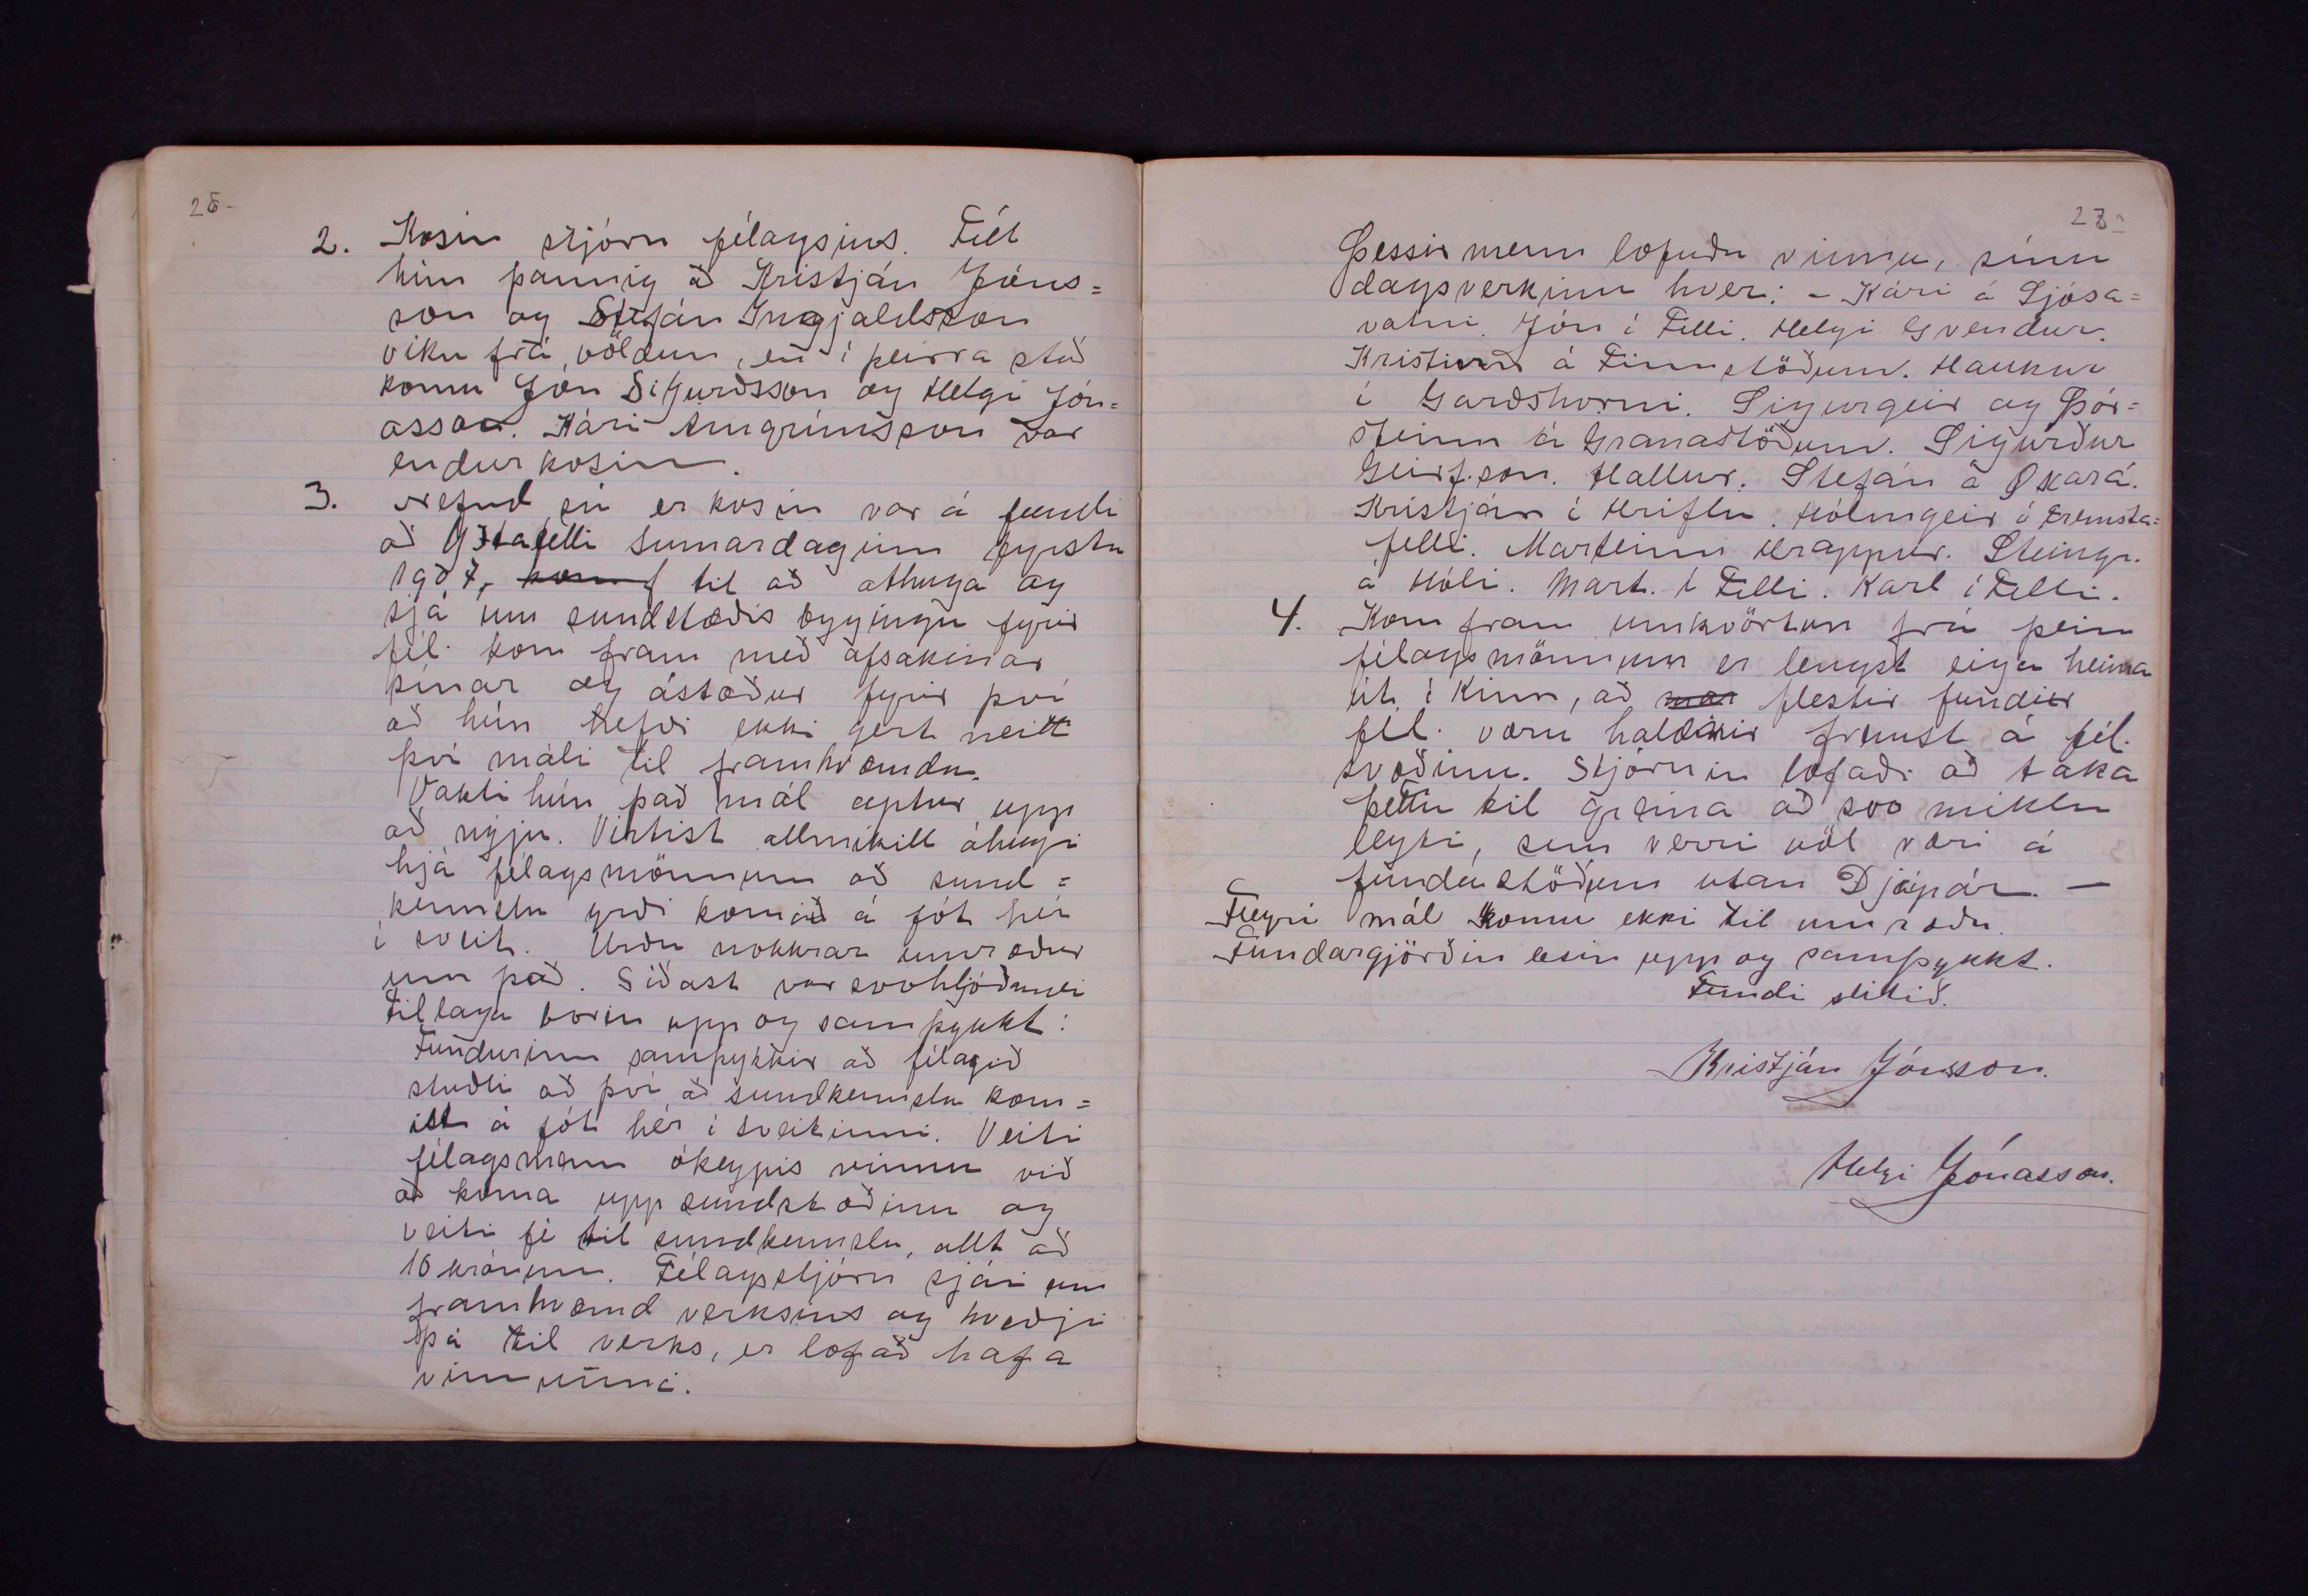 26-
2. Kosin stjórn félagsins. Féll
hún þannig að Kristján Jóns=
son og Stefán Ingjaldsson
viku frá völdum, en í þeirra stað
komu Jón Sigurðsson og Helgi Jón=
asson. Kári Arngrímsson var
endurkosinn.
3. Nefnd sú er kosin var á fundi
að Ystafelli sumardaginn fyrsta
1907, til að athuga og
sjá um sundstæðis byggingu fyrir
fél. kom fram með afsakinar
sínar og ástæður fyrir því
að hún hefði ekki gert neitt
því máli til framkvæmda.
Vakti hún það mál aptur upp
að nýju. Virtist allmikill áhugi
hjá félagsmönnum að sund=
kennslu yrði komið á fót hér
í sveit. Urðu nokkrar umræður
um það. Síðast var svohljóðandi
tillaga borin upp og samþykkt:
Fundurinn samþykkir að félagið
stuðli að því að sundkennsla kom=
ist á fót hér í sveitinni. Veiti
félagsmenn ókeypis vinnu við
að koma upp sundstæðinu og
veiti fé til sundkennslu, allt að
10 krónum. Félagsstjórn sjái um
framkvæmd verksins og kveðji
þá til verks, er lofað hafa
vinnunni.
27-
Þessir menn lofuðu vinnu, sínu
dagsverkinu hver: - Kári á Ljósa=
vatni. Jón í Felli. Helgi Gvendur.
Kristinn á Finnstöðum. Haukur
í Garðshorni. Sigurgeir og Þór=
steinn á Granastöðum. Sigurður
Geirf.son. Hallur. Stefán á Öxará.
Kristján í Hriflu. Hólmgeir á Fremsta=
felli. Marteinn Krappur. Steingr.
á Hóli. Mart. í Felli. Karl í Felli.
4. Kom fram umkvörtun frá þeim
félagsmönnum er lengst eiga heima
út í Kinn, að flestir fundir
fél. væru haldnir fremst á fél.
svæðinu. Stjórnin lofaði að taka
þetta til greina að svo miklu
leyti, sem verri völ væri á
fundarstöðum utan Djúpár. -
Fleyri mál komu ekki til umræðu.
Fundargjörðin lesin upp og samþykkt.
Fundi slitið.
Kristján Jónsson.
Helgi Jónasson.